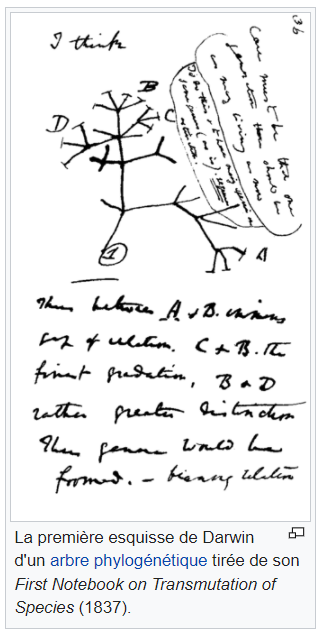 36
I think
Case must be that one
generation then should be
as many living as now
To do this & to have many species in
same genus (as is) requires
extinction
B
D
C
A
1
Thus between A & B. immense
gap of relation. C & B. the
finest gradation, B & D
rather greater distinction
Thus genera would be
formed. — bearing relation
La première esquisse de Darwin
d'un arbre phylogénétique tirée de son
First Notebook on Transmutation of
Species (1837).